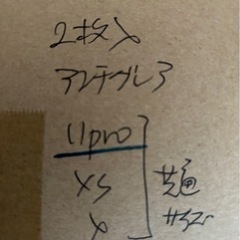 2枚入
アンチグレア
11pro
XS
X
共通